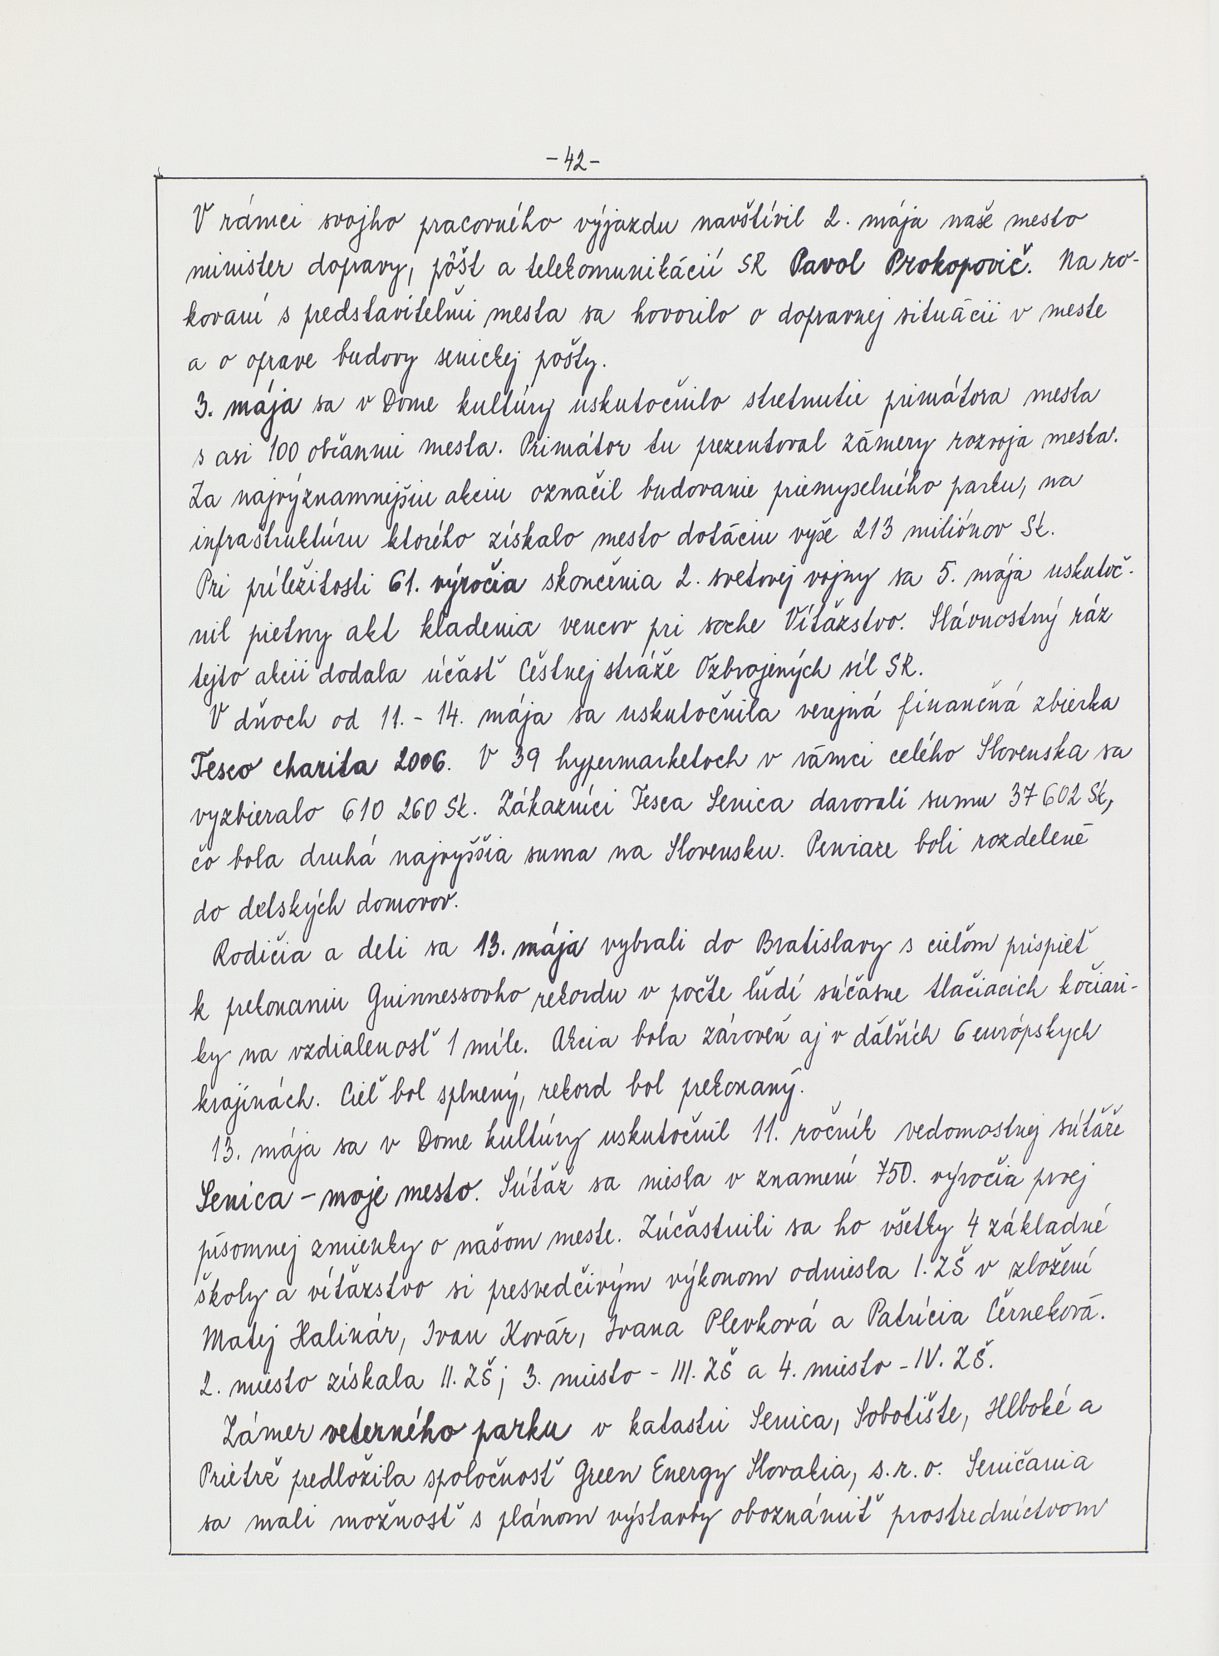 -42-
V rámci svojho pracovného výjazdu navštívil 2. mája naše mesto
minister dopravy, pôšt a telekomunikácií SR Pavol Prokopovič. Na ro-
kovaní s predstaviteľmi mesta sa hovorilo o dopravnej situácii v meste
a o oprave budovy senickej pošty.
3. mája sa v Dome kultúry uskutočnilo stretnutie primátora mesta
s asi 100 občanmi mesta. Primátor tu prezentoval zámery rozvoja mesta.
Za najvýznamnejšiu akciu označil budovanie priemyselného parku, na
infraštruktúru ktorého získalo mesto dotáciu vyše 213 miliónov Sk.
Pri príležitosti 61. výročia skončenia 2. svetovej vojny sa 5. mája uskutoč-
nil pietny akt kladenia vencov pri soche Víťazstvo. Slávnostný ráz
tejto akcii dodala účasť Čestnej stráže Ozbrojených síl SR.
V dňoch od 11. - 14. mája sa uskutočnila verejná finančná zbierka
Tesco charita 2006. V 39 hypermarketoch v rámci celého Slovenska sa
vyzbieralo 610 260 Sk. Zákazníci Tesca Senica darovali sumu 37 602 Sk,
čo bola druhá najvyššia suma na Slovensku. Peniaze boli rozdelené
do detských domovov.
Rodičia a deti sa 13. mája vybrali do Bratislavy s cieľom prispieť
k prekonaniu Guinnessovho rekordu v počte ľudí súčasne tlačiacich kočiari-
ky na vzdialenosť 1 míle. Akcia bola zároveň aj v ďalších 6 európskych
krajinách. Cieľ bol splnený, rekord bol prekonaný.
13. mája sa v Dome kultúry uskutočnil 11. ročník vedomostnej súťaže
Senica - moje mesto. Súťaž sa niesla v znamení 750. výročia prvej
písomnej zmienky o našom meste. Zúčastnili sa ho všetky 4 základné
školy a víťazstvo si presvedčivým výkonom odniesla I. ZŠ v zložení
Matej Halinár, Ivan Kovár, Ivana Plevková a Patrícia Černeková.
2. miesto získala II. ZŠ; 3. miesto - III. ZŠ a 4. miesto - IV. ZŠ.
Zámer veterného parku v katastri Senica, Sobotište, Hlboké a
Prietrž predložila spoločnosť Green Energy Slovakia, s.r.o. Seničania
sa mali možnosť s plánom výstavby oboznámiť prostredníctvom